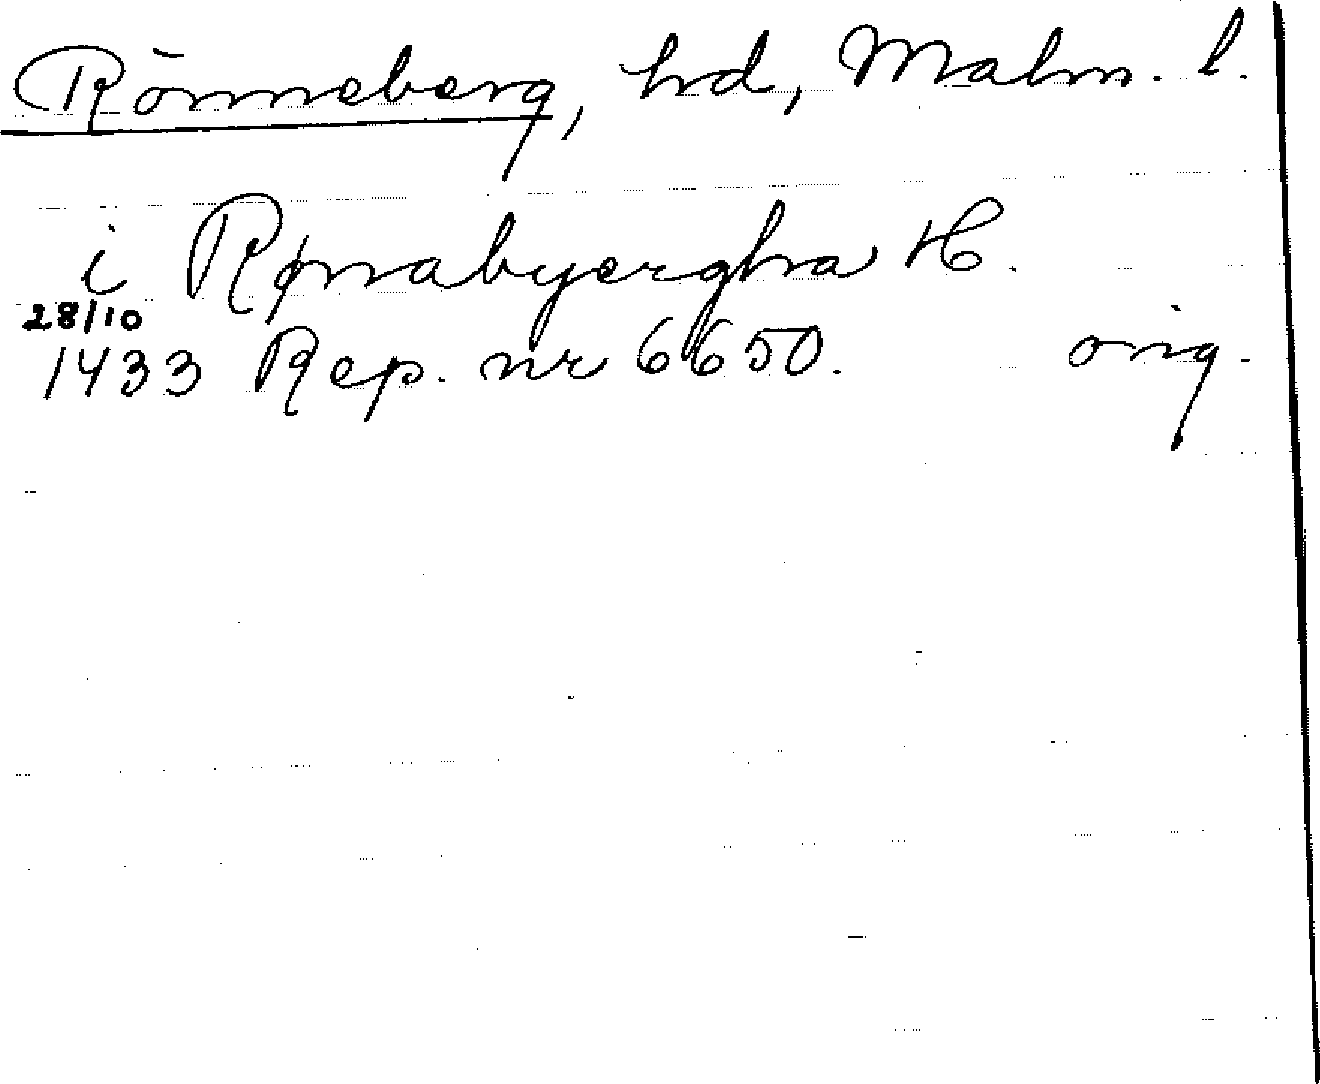 Rönneberg, hd, Malm. l.
i Rønabyergha H.
28/10
1433 Rep. nr 6650. orig.